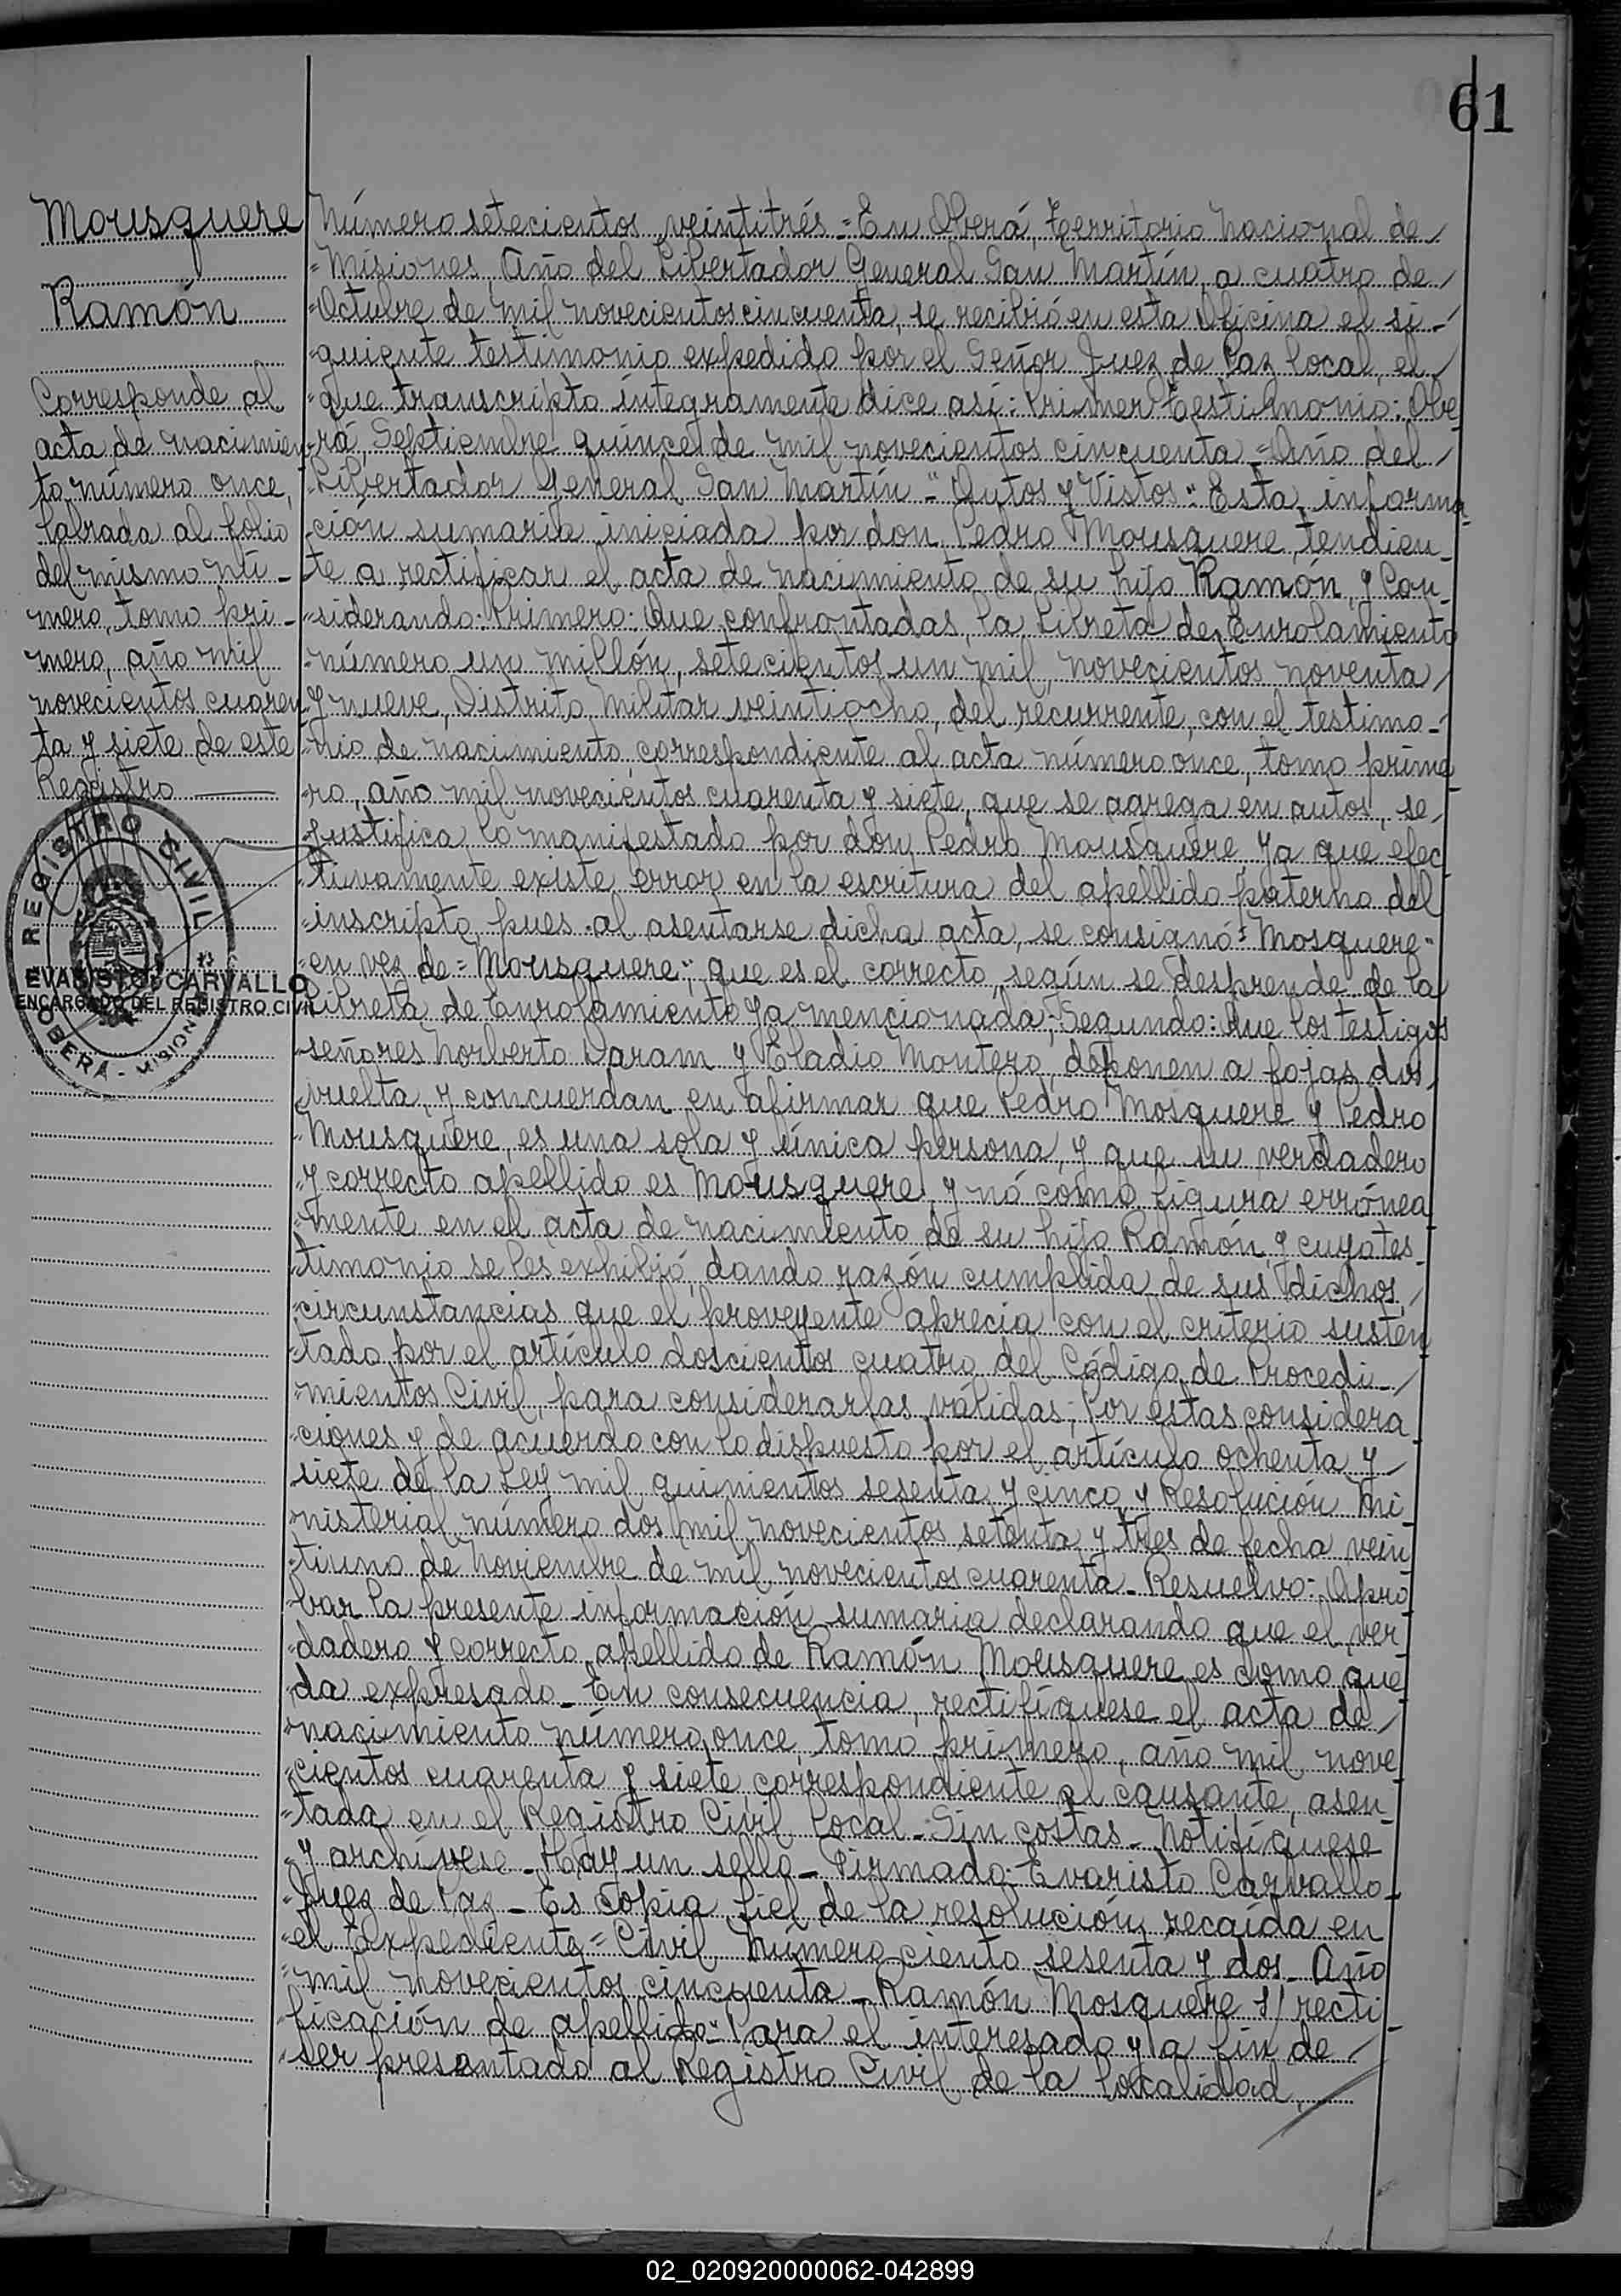 61
Mousquere
Ramón
Corresponde al
acta de nacimien-
to número once,
labrada al folio
del mismo nú-
mero, tomo pri-
mero, año mil
novecientos cuaren-
ta y siete de este
Registro
REGISTRO CIVIL
EVARISTO CARVALLO
ENCARGADO DEL REGISTRO CIVIL
OBERÁ - MISIONES
Número setecientos veintitrés = En Oberá, Territorio Nacional de
Misiones, Año del Libertador General San Martín, a cuatro de
Octubre de mil novecientos cincuenta, se recibió en esta Oficina el si-
guiente testimonio expedido por el Señor Juez de Paz local, el
que transcripto íntegramente dice así: Primer Testimonio: Obe-
rá, Septiembre quince de mil novecientos cincuenta = Año del
Libertador General San Martín - "Autos y Vistos": Esta informa-
ción sumaria iniciada por don Pedro Mousquere, tendien-
te a rectificar el acta de nacimiento de su hijo Ramón, y Con-
siderando: Primero: Que confrontadas, la Libreta de Enrolamiento
número un millón, setecientos un mil, novecientos noventa
y nueve, Distrito Militar veintiocho, del recurrente, con el testimo-
nio de nacimiento, correspondiente al acta número once, tomo prime
ro, año mil novecientos cuarenta y siete, que se agrega en autos, se
justifica lo manifestado por don Pedro Mousquere, ya que efec
tivamente existe error en la escritura del apellido paterno del
inscripto, pues al asentarse dicha acta, se consignó = Mosquere"
en vez de = Mousquere", que es el correcto, según se desprende de la
Libreta de Enrolamiento ya mencionada; Segundo: Que los testigos
señores Norberto Daram y Eladio Montero, deponen a fojas dos
vuelta, y concuerdan en afirmar que Pedro Mosquere y Pedro
Mousquere, es una sola y única persona, y que su verdadero
y correcto apellido es Mousquere, y nó como figura errónea
mente en el acta de nacimiento de su hijo Ramón, y cuyo tes-
timonio se les exhibió, dando razón cumplida de sus dichos,
circunstancias que el proveyente aprecia con el criterio susten
tado por el artículo doscientos cuatro del Código de Procedi-
mientos Civil, para considerarlas válidas; Por estas considera
ciones y de acuerdo con lo dispuesto por el artículo ochenta y
siete de la Ley mil quinientos sesenta y cinco y Resolución Mi-
nisterial número dos mil novecientos setenta y tres de fecha vein
tiuno de Noviembre de mil novecientos cuarenta - Resuelvo: Apro
bar la presente información sumaria declarando que el ver
dadero y correcto apellido de Ramón Mousquere es como que
da expresado - En consecuencia, rectifíquese el acta de
nacimiento número once, tomo primero, año mil nove
cientos cuarenta y siete correspondiente al causante, asen-
tada en el Registro Civil local - Sin costas - Notifíquese
y archívese - Hay un sello - Firmado - Evaristo Carvallo -
Juez de Paz - Es copia fiel de la resolución recaída en
el Expediente = Civil Número ciento sesenta y dos - Año
mil novecientos cincuenta - Ramón Mosquere s/ recti-
ficación de apellido" Para el interesado y a fin de
ser presentado al Registro Civil de la localidad,
02_020920000062-042899